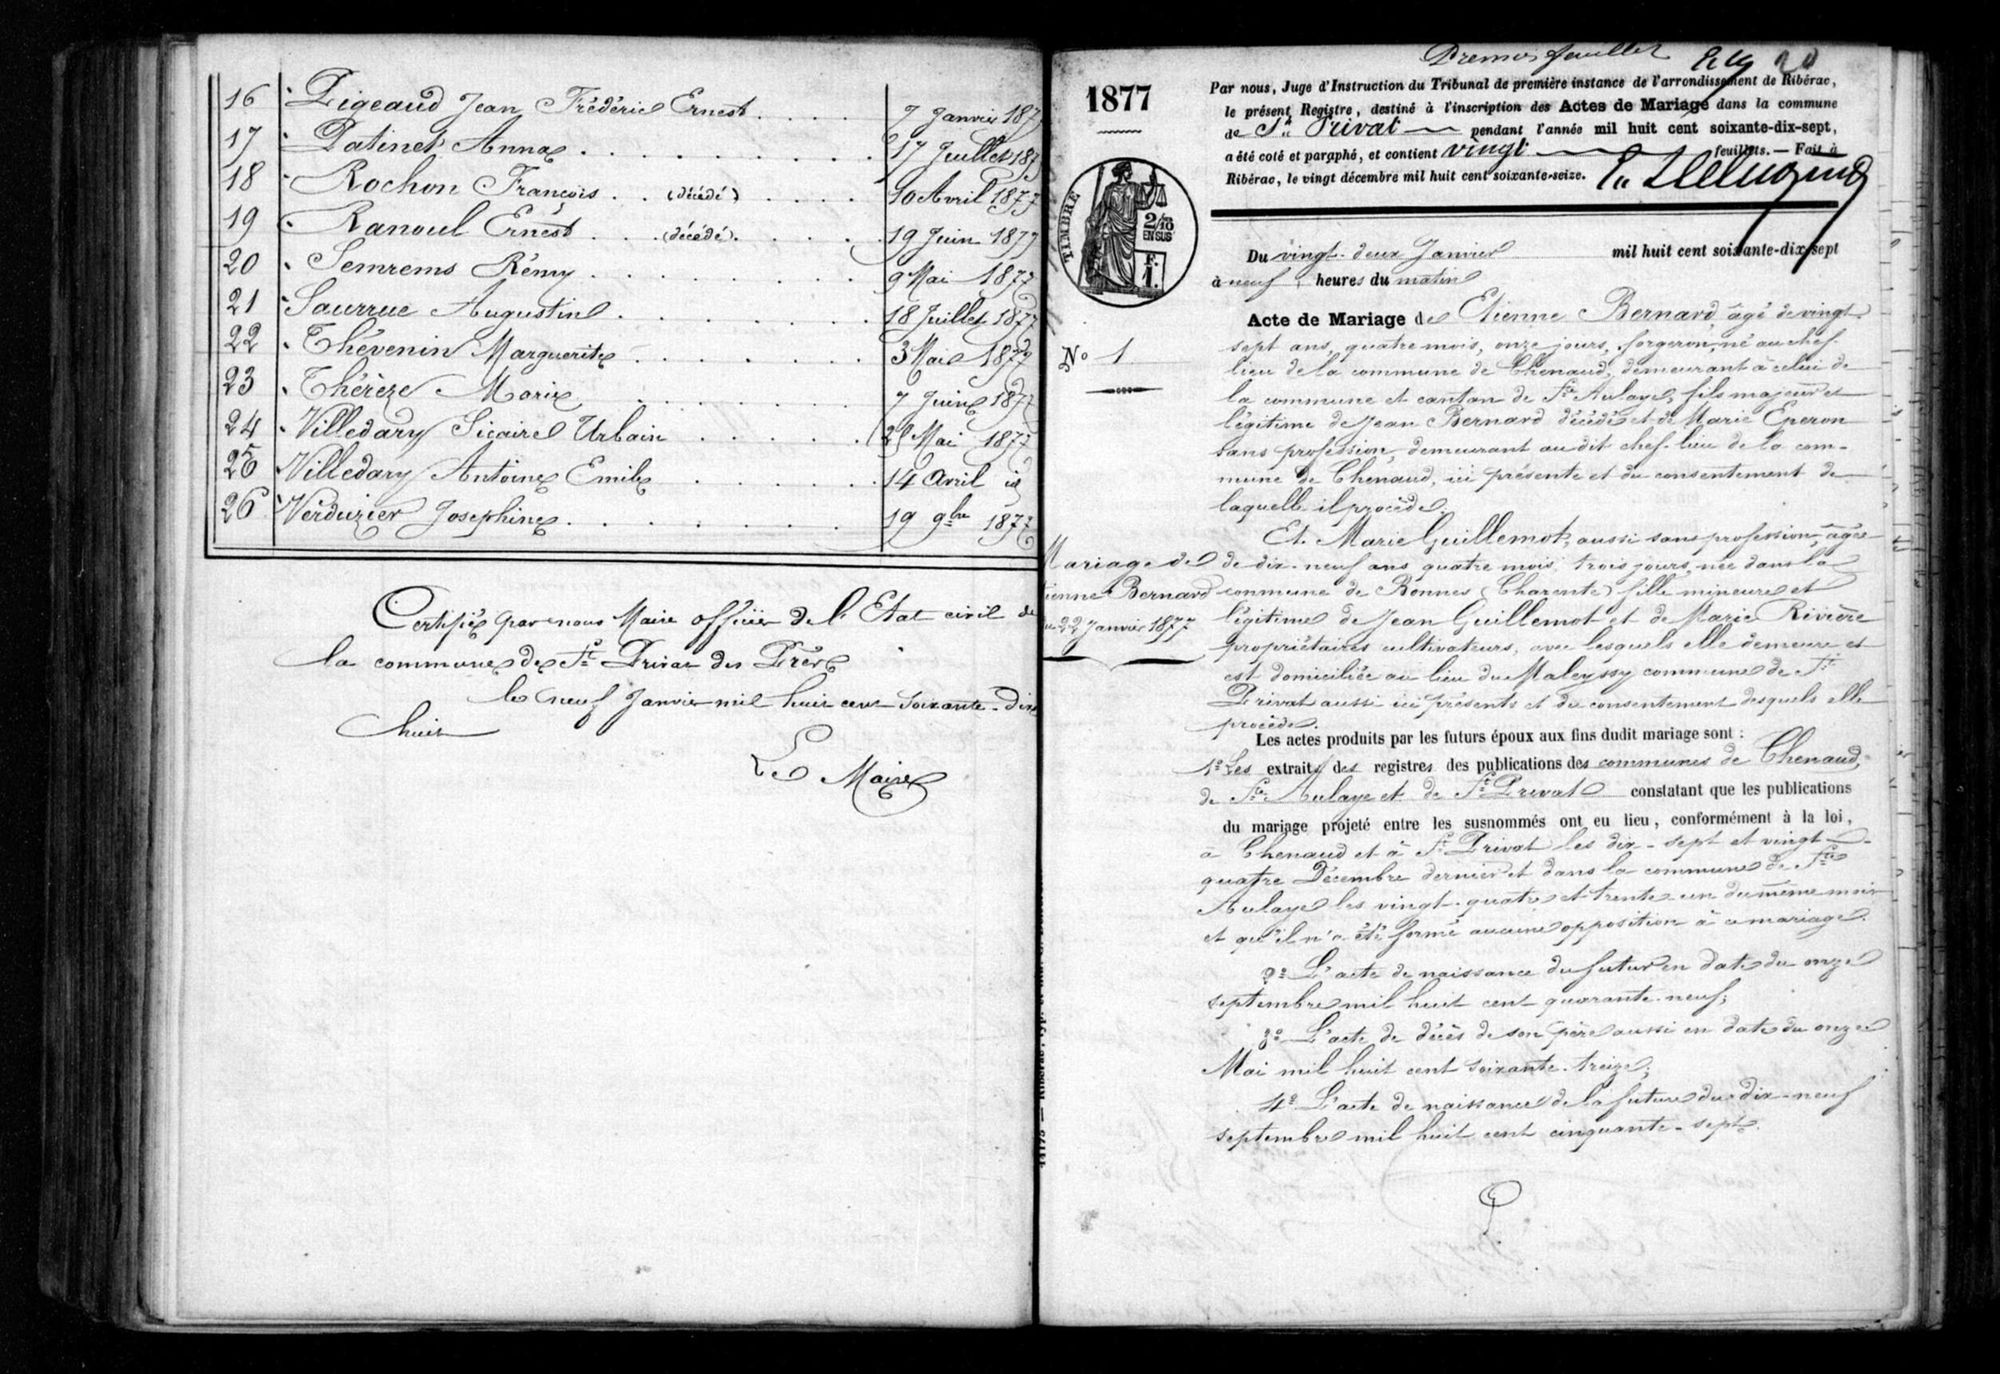 16 Pigeaud Jean Frédéric Ernest 7 Janvier 1877
17 Patinet Anna 17 Juillet 1877
18 Rochon François (décédé) 10 Avril 1877
19 Ranoul Ernest (décédé) 19 Juin 1877
20 Semrems Rémy 9 Mai 1877
21 Saurrue Augustin 18 Juillet 1877
22 Thévenin Marguerite 3 Mai 1877
23 Thérèze Marie 7 Juin 1877
24 Villedary Sicaire Urbain 28 Mai 1877
25 Villedary Antoine Emile 14 Avril id
26 Verduzier Josephine 19 9bre 1877
Certifié par nous Maire officier de l'Etat civil de
la commune de St Privat des Prés
le neuf Janvier mil huit cent soixante-dix
huit
Le Maire
Premier feuillet 20
1877
Par nous, Juge d'Instruction du Tribunal de première instance de l'arrondissement de Ribérac,
le présent Registre, destiné à l'inscription des Actes de Mariage dans la commune
de St Privat pendant l'année mil huit cent soixante-dix-sept,
a été coté et paraphé, et contient vingt feuillets. — Fait à
Ribérac, le vingt décembre mil huit cent soixante-seize.
TIMBRE
2/10
EN SUS
F.
1.
Du vingt-deux Janvier mil huit cent soixante-dix-sept
à neuf heures du matin
No 1
Acte de Mariage de Etienne Bernard, âgé de vingt-
sept ans, quatre mois, onze jours, forgeron, né au chef-
lieu de la commune de Chenaud, demeurant à celui de
la commune et canton de Ste Aulaye, fils majeur et
légitime de Jean Bernard décédé et de Marie Eperon
sans profession, demeurant au dit chef-lieu de la com-
mune de Chenaud, ici présente et du consentement de
laquelle il procède.
Et Marie Guillemot, aussi sans profession, âgée
de dix-neuf ans quatre mois trois jours, née dans la
commune de Bonnes (Charente) fille mineure et
légitime de Jean Guillemot et de Marie Rivière
propriétaires cultivateurs, avec lesquels elle demeure et
est domiciliée au lieu du Maleyssy commune de St
Privat aussi ici présents et du consentement desquels elle
procède.
Mariage de
Etienne Bernard
du 22 Janvier 1877
Les actes produits par les futurs époux aux fins dudit mariage sont :
1º Les extraits des registres des publications des communes de Chenaud,
de Ste Aulaye et de St Privat constatant que les publications
du mariage projeté entre les susnommés ont eu lieu, conformément à la loi,
à Chenaud et à St Privat les dix-sept et vingt-
quatre Décembre dernier et dans la commune de Ste
Aulaye les vingt-quatre et trente-un du même mois
et qu'il n'a été formé aucune opposition à ce mariage.
2º L'acte de naissance du futur en date du onze
septembre mil huit cent quarante-neuf;
3º L'acte de décès de son père aussi en date du onze
Mai mil huit cent soixante-treize;
4º L'acte de naissance de la future du dix-neuf
septembre mil huit cent cinquante-sept.